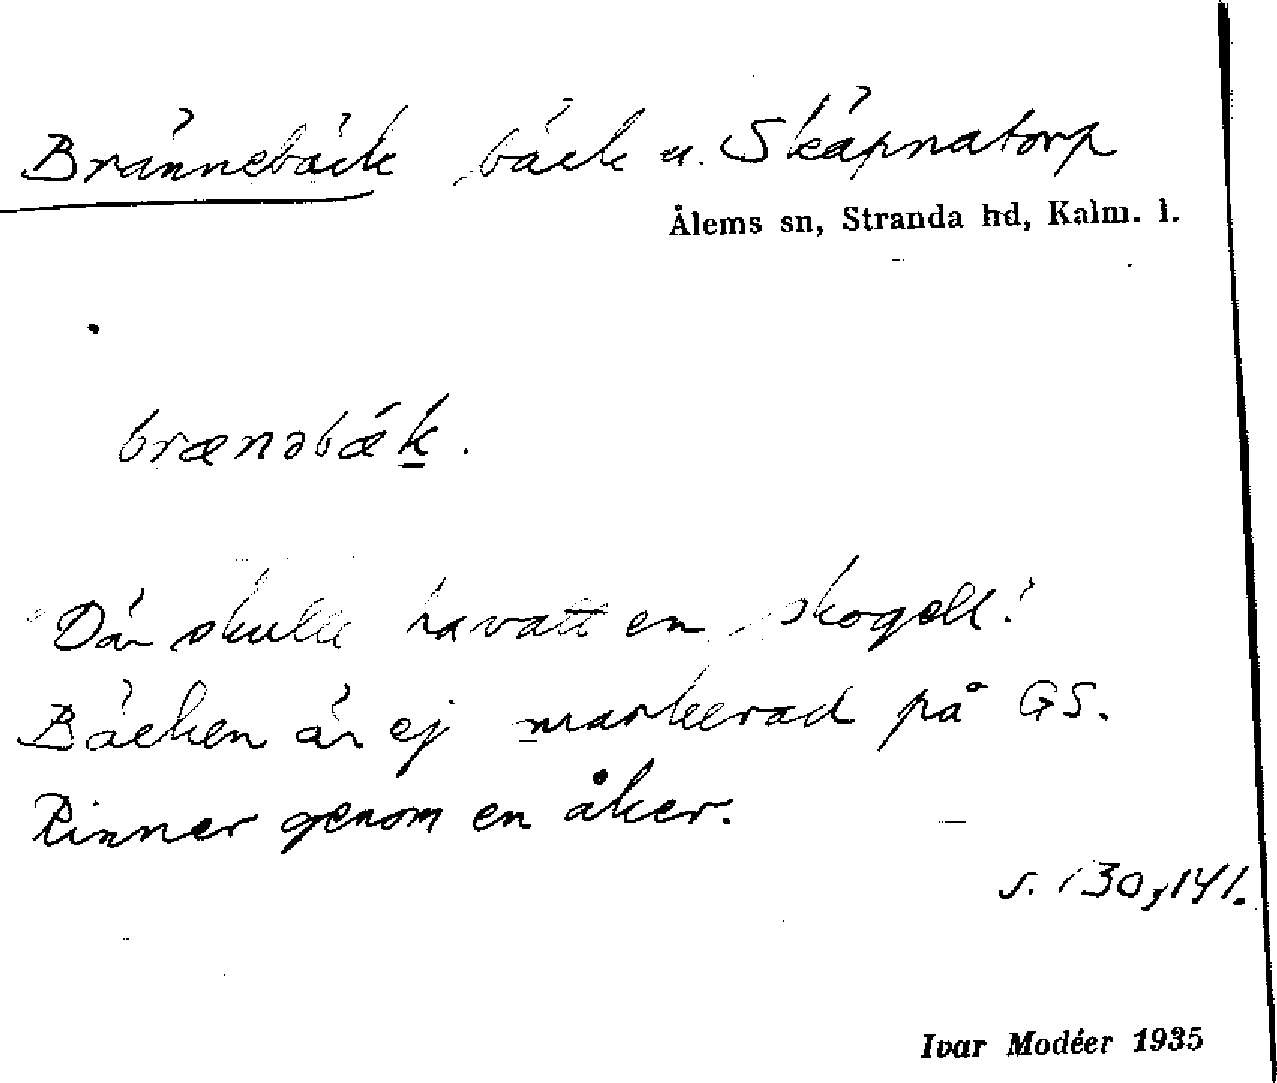 Brännebäck bäck u. Skäpnatorp
Ålems sn, Stranda hd, Kalm. l.
brænəbæk.
"Där skulle havatt en skogsell."
Bäcken är ej markerad på GS.
Rinner genom en åker.
s. 130, 141.
Ivar Modéer 1935